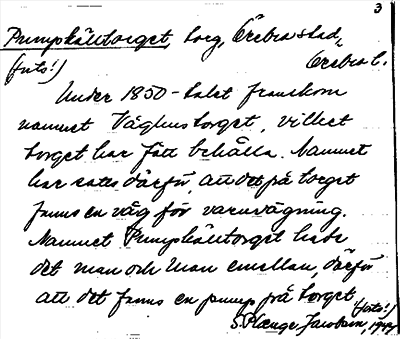 3
Pumpkälltorget, torg, Örebro stad,
(frits!) Örebro l.
Under 1850-talet framkom
namnet Våghustorget, vilket
torget har fått behålla. Namnet
har satts därför, att det på torget
fanns en våg för varuvägning.
Namnet Pumpkälltorget hade
det man och man emellan, därför
att det fanns en pump på torget
S. Plænge Jacobson, 1947